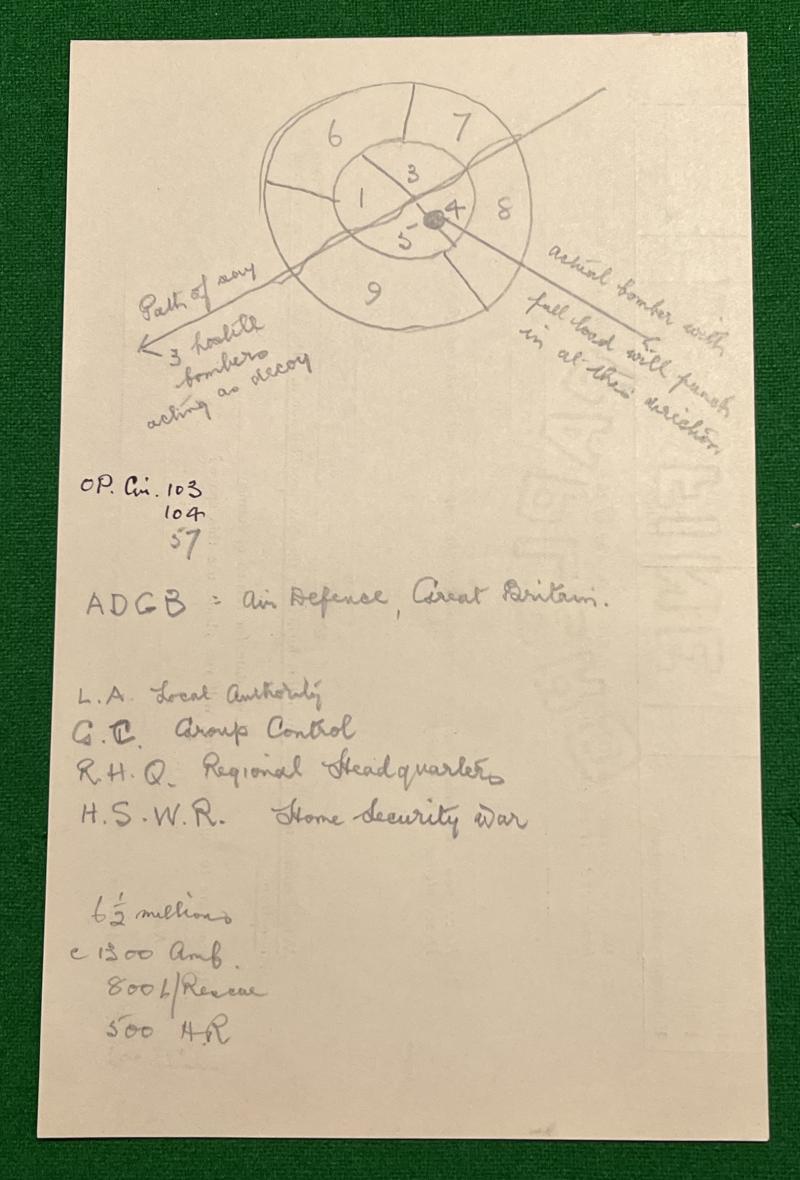 6
7
3
1
4
8
5
9
Path of say
3 hostile
bombers
acting as decoy
actual bomber with
full load will punch
in at this direction
OP. Cir. 103
104
57
ADGB = Air Defence, Great Britain.
L.A. Local Authority
G.C. Group Control
R.H.Q. Regional Headquarters
H.S.W.R. Home Security War
6½ millions
c 1300 Amb.
800 L/Rescue
500 H.R